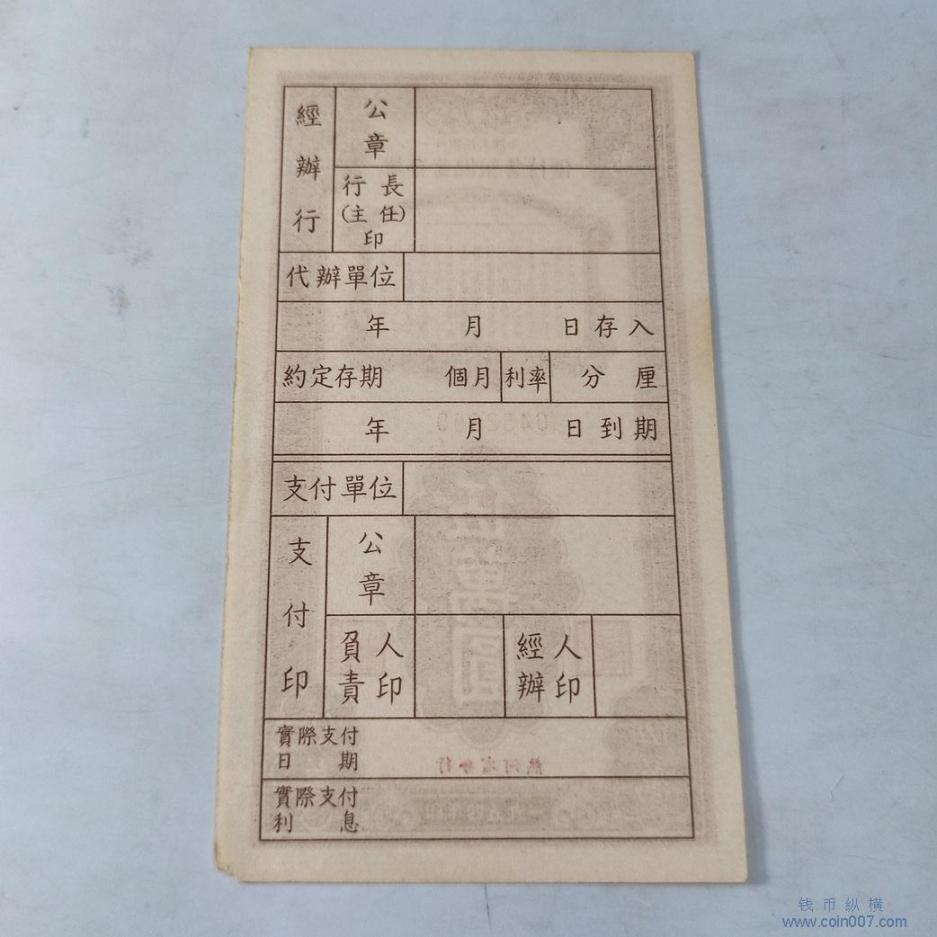 經辦行
公章
行長
(主任)
印
代辦單位
年 月 日存入
約定存期 個月 利率 分 厘
年 月 日到期
支付單位
支付印
公章
負責
人印
經辦
人印
實際支付
日期
實際支付
利息
钱币纵横
www.coin007.com